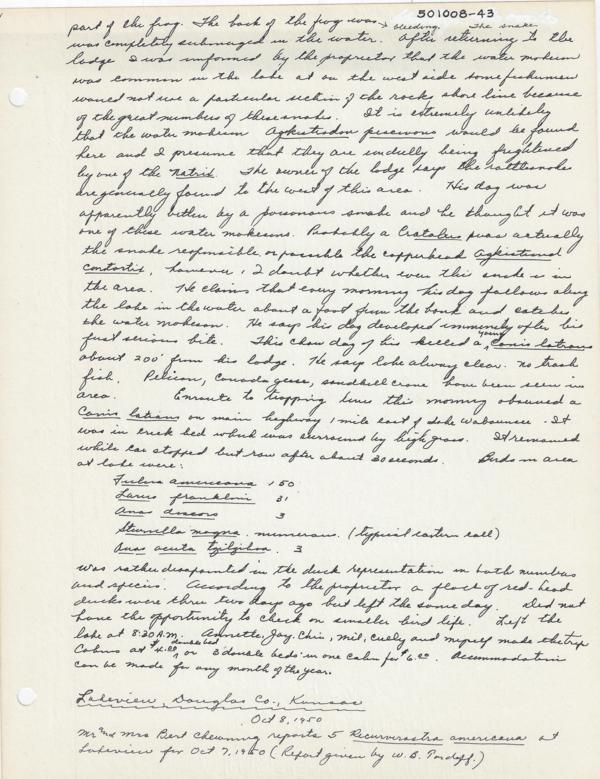 501008-43
part of the frog. The back of the frog was bleeding. The snake
was completely submerged in the water. After returning to the
lodge I was informed by the proprietor that the water mokesin
was common in the lake at on the west side some fishermen
would not use a particular section of the rocky shore line because
of the great numbers of these snakes. It is extremely unlikely
that the water mokesin Agkistrodon piscivorus would be found
here and I presume that they are unduly being frightened
by one of the Natrix. The owner of the lodge says the rattlesnake
are generally found to the west of this area. His dog was
apparently bitten by a poisonous snake and he thought it was
one of these water mokesins. Probably a Crotalus was actually
the snake responsible or possible the copperhead Agkistrodon
contortrix, however, I doubt whether even this snake is in
the area. He claims that every morning his dog follows along
the lake in the water about a foot from the bank and catches
the water mokeson. He says his dog developed immunity after his
first serious bite. This chow dog of his killed a young Canis latrans
about 200' from his lodge. He says lake always clear. no trash
fish. Pelican, Canada geese, sandhill crane have been seen in
area. Enroute to trapping lines this morning observed a
Canis latrans on main highway 1 mile east of Lake Wabaunsee. It
was in creek bed which was surround by high grass. It remained
while car stopped but ran after about 30 seconds. Birds in area
at lake were:
Fulica americana 150
Larus franklini 31
Anas discors 3
Sturnella magna numerous. (typical eastern call)
Anas acuta tzitzihoa. 3
was rather disapointed in the duck representation in both numbers
and species. According to the proprietor a flock of red-head
ducks were there two days ago but left the same day. Did not
have the opportunity to check on smaller bird life. Left the
lake at 8:30 A.M. Annette, Jay, Chris, Mil, Curly and myself made the trip
Cabins at $4.00 double bed or 3 double beds in one cabin for $6.00. Accommodation
can be made for any month of the year.
Lakeview, Douglas Co., Kansas
Oct 8, 1950
Mr and Mrs Bert Chewning reports 5 Recurvirostra americana at
Lakeview for Oct 7, 1950 (Report given by W. B. Tordoff.)